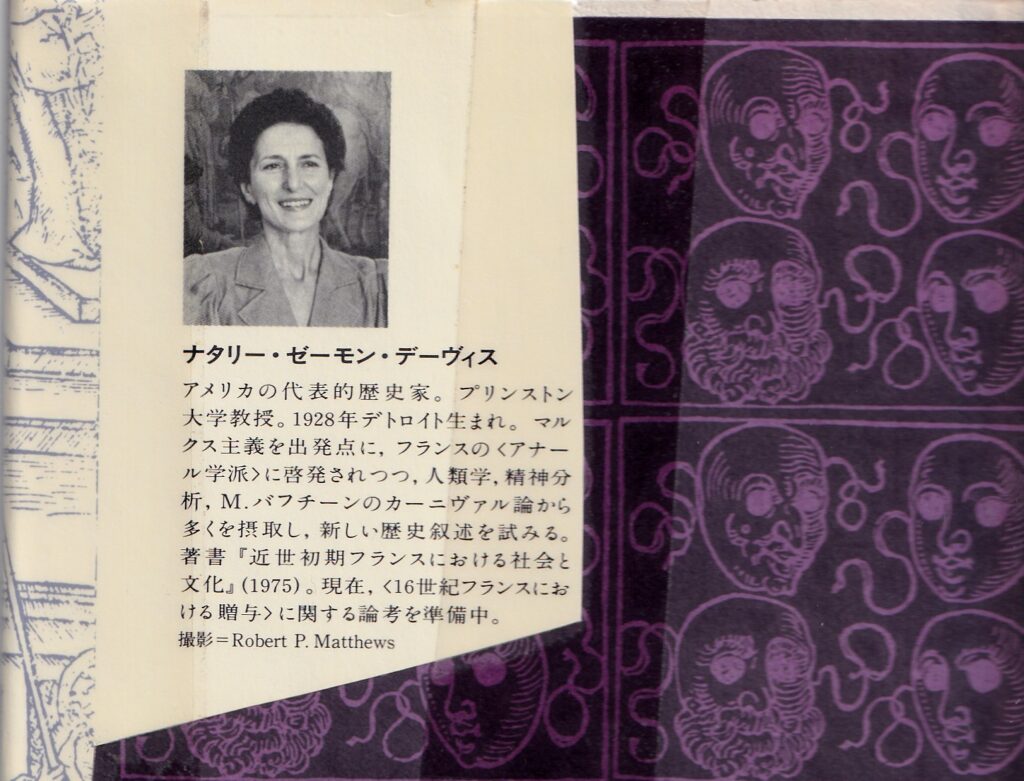 ナタリー・ゼーモン・デーヴィス
アメリカの代表的歴史家。プリンストン
大学教授。1928年デトロイト生まれ。マル
クス主義を出発点に，フランスの〈アナー
ル学派〉に啓発されつつ，人類学，精神分
析，M.バフチーンのカーニヴァル論から
多くを摂取し，新しい歴史叙述を試みる。
著書『近世初期フランスにおける社会と
文化』(1975)。現在，〈16世紀フランスにお
ける贈与〉に関する論考を準備中。
撮影＝Robert P. Matthews